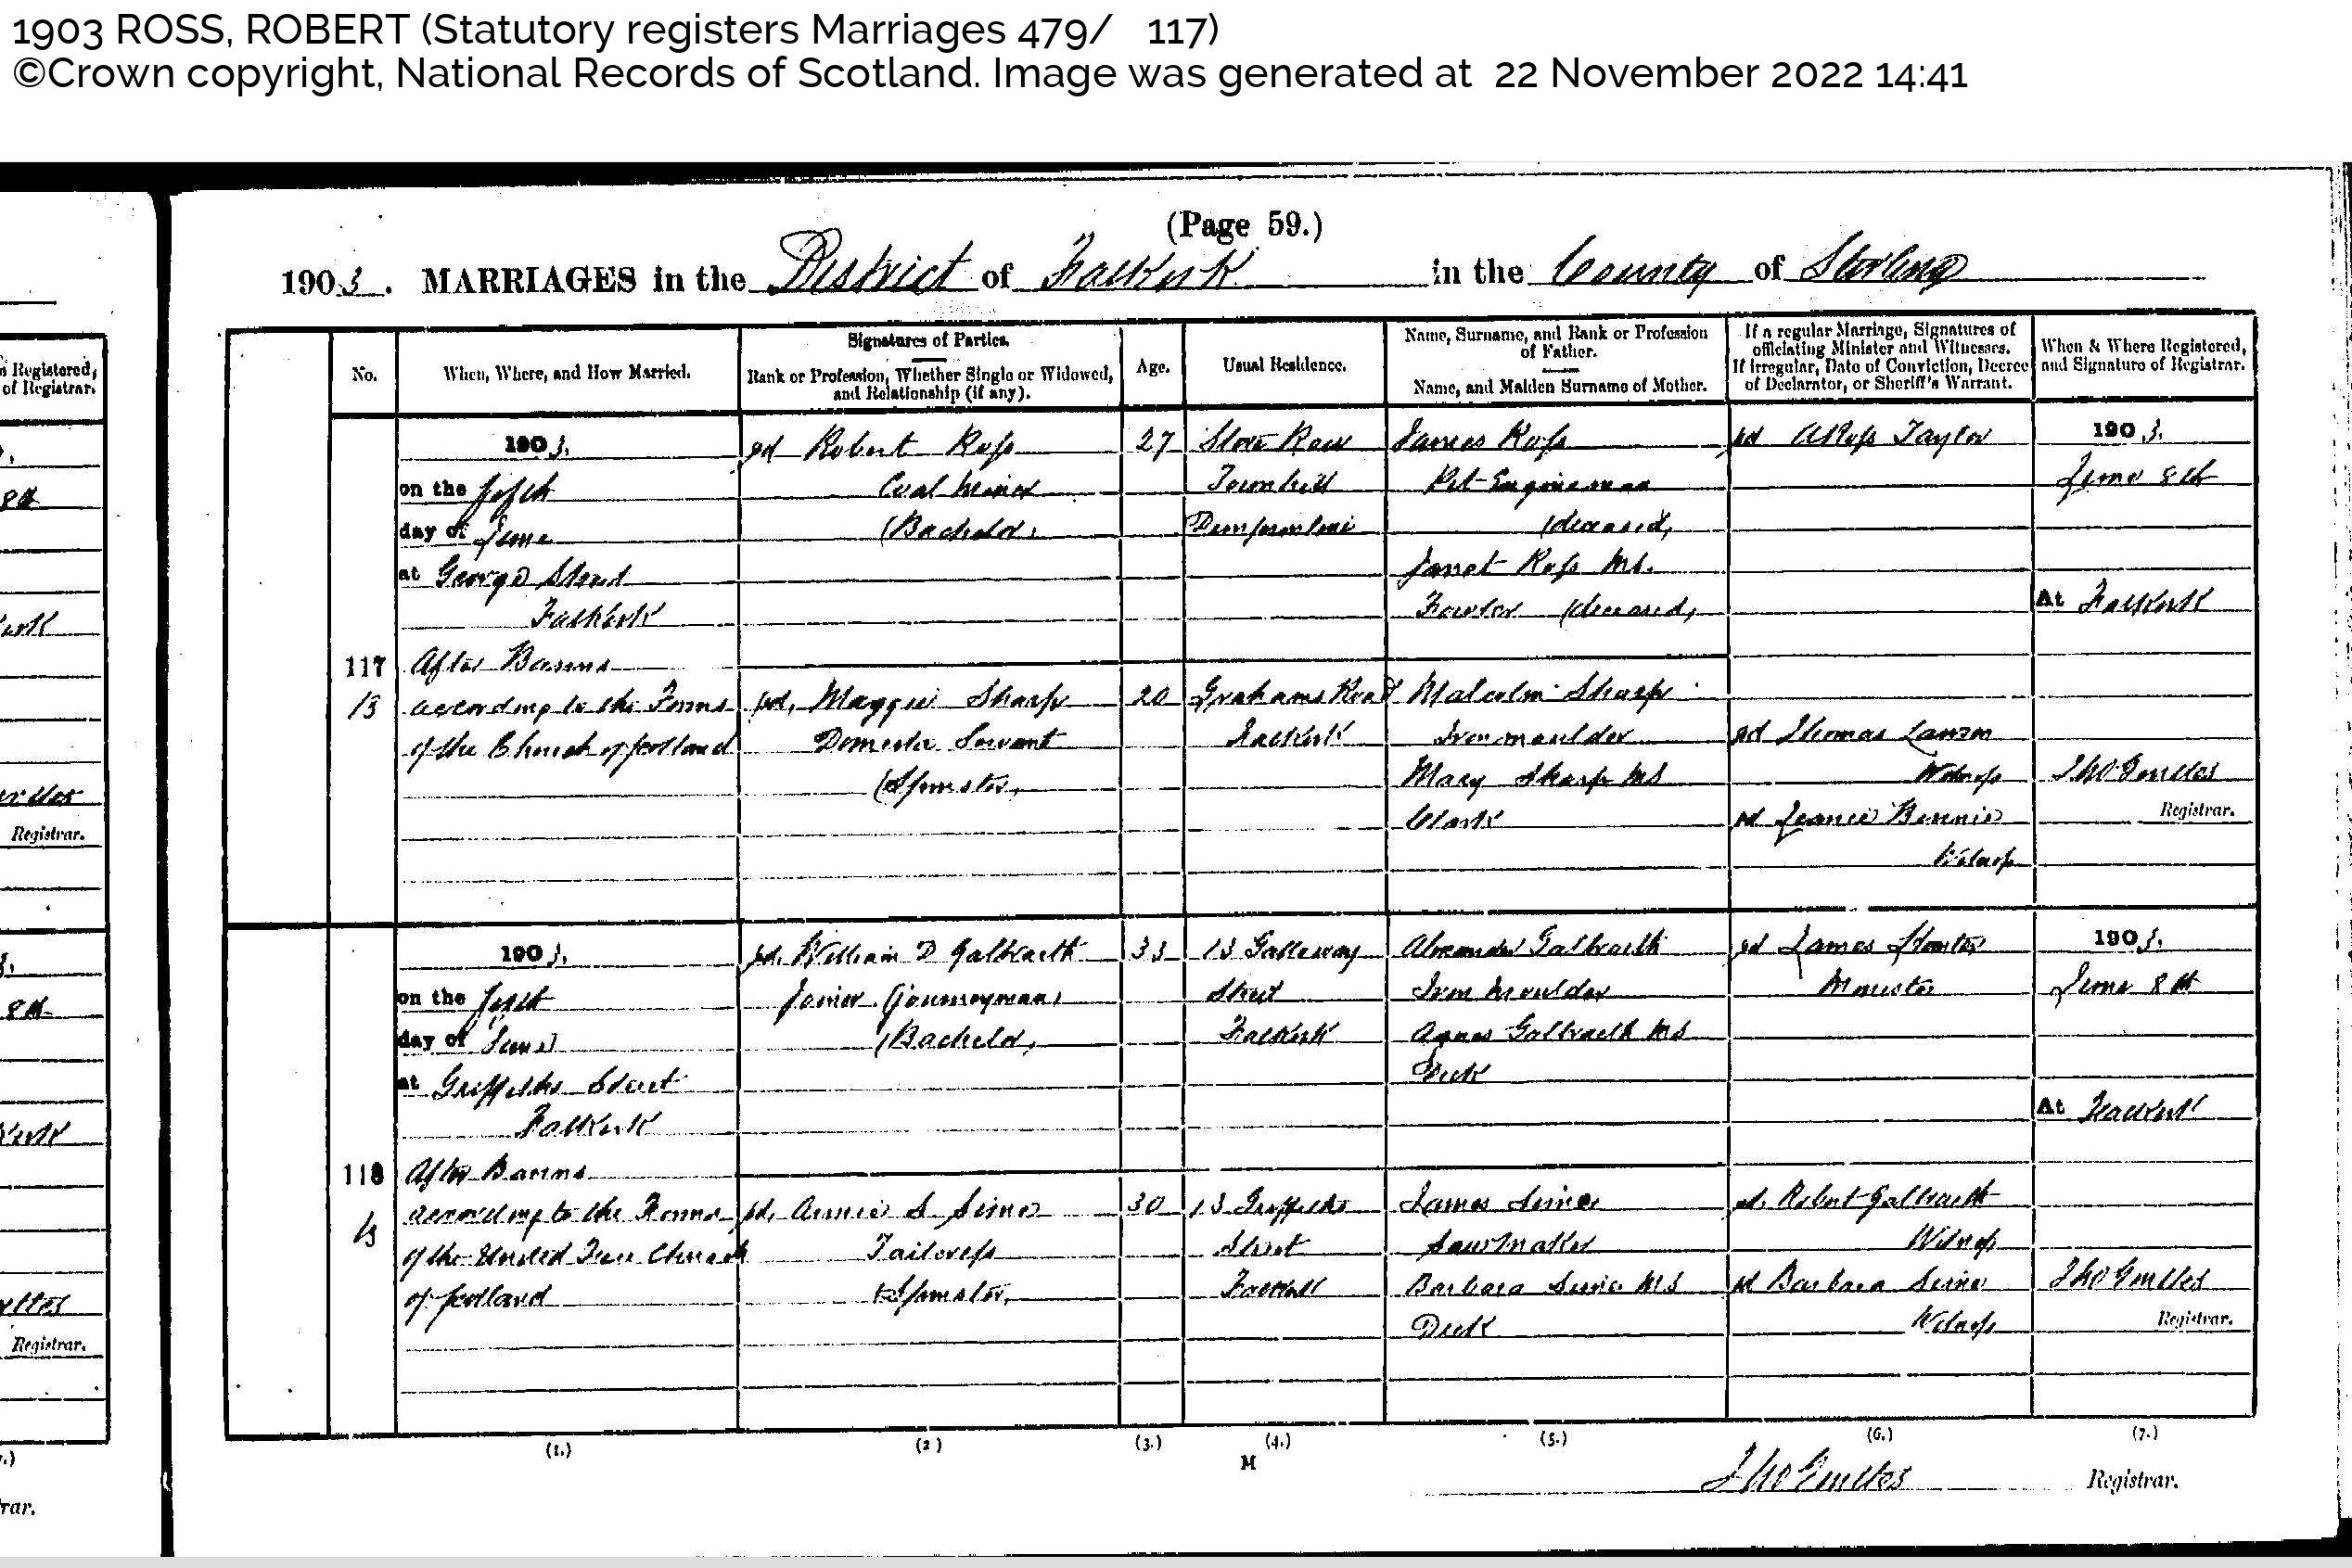 1903 ROSS, ROBERT (Statutory registers Marriages 479/ 117)
©Crown copyright, National Records of Scotland. Image was generated at 22 November 2022 14:41
(Page 59.)
1903. MARRIAGES in the District of Falkirk in the County of Stirling
n Registered,
of Registrar.
8th
Registrar.
8th
Registrar.
rar.
No.
When, Where, and How Married.
Signatures of Parties.
Rank or Profession, Whether Single or Widowed,
and Relationship (if any).
Age.
Usual Residence.
Name, Surname, and Rank or Profession
of Father.
Name, and Maiden Surname of Mother.
If a regular Marriage, Signatures of
officiating Minister and Witnesses.
If Irregular, Date of Conviction, Decree
of Declarator, or Sheriff's Warrant.
When & Where Registered,
and Signature of Registrar.
117
1903.
on the fifth
day of June
at George Street
Falkirk
After Banns
according to the Forms
of the Church of Scotland
Robert Ross
Coal Miner
(Bachelor)
27
Row
Townhill
Dunfermline
James Ross
Pit Engineman
(deceased)
Janet Ross M.S.
Fowler (deceased)
A Ross Taylor
1903.
June 8th
At Falkirk
Maggie Sharp
Domestic Servant
(Spinster)
20
Grahams Road
Falkirk
Malcolm Sharp
Iron moulder
Mary Sharp MS
Clark
Thomas Lawson
Witness
Jeanie Bennie
Witness
Registrar.
118
1903.
on the fifth
day of June
at Griffiths Street
Falkirk
After Banns
according to the Forms
of the United Free Church
of Scotland
William D Galbraith
Joiner (journeyman)
(Bachelor)
33
13 Galloway
Street
Falkirk
Alexander Galbraith
Iron Moulder
Agnes Galbraith MS
Dick
James
Minister
1903.
June 8th
At Falkirk
Annie S. Sime
Tailoress
(Spinster)
30
13 Griffiths
Street
Falkirk
James Sime
Saw Maker
Barbara Sime MS
Dick
Robert Galbraith
Witness
Barbara Sime
Witness
Registrar.
(1.) (2.) (3.) (4.) (5.) (6.) (7.)
M
Registrar.